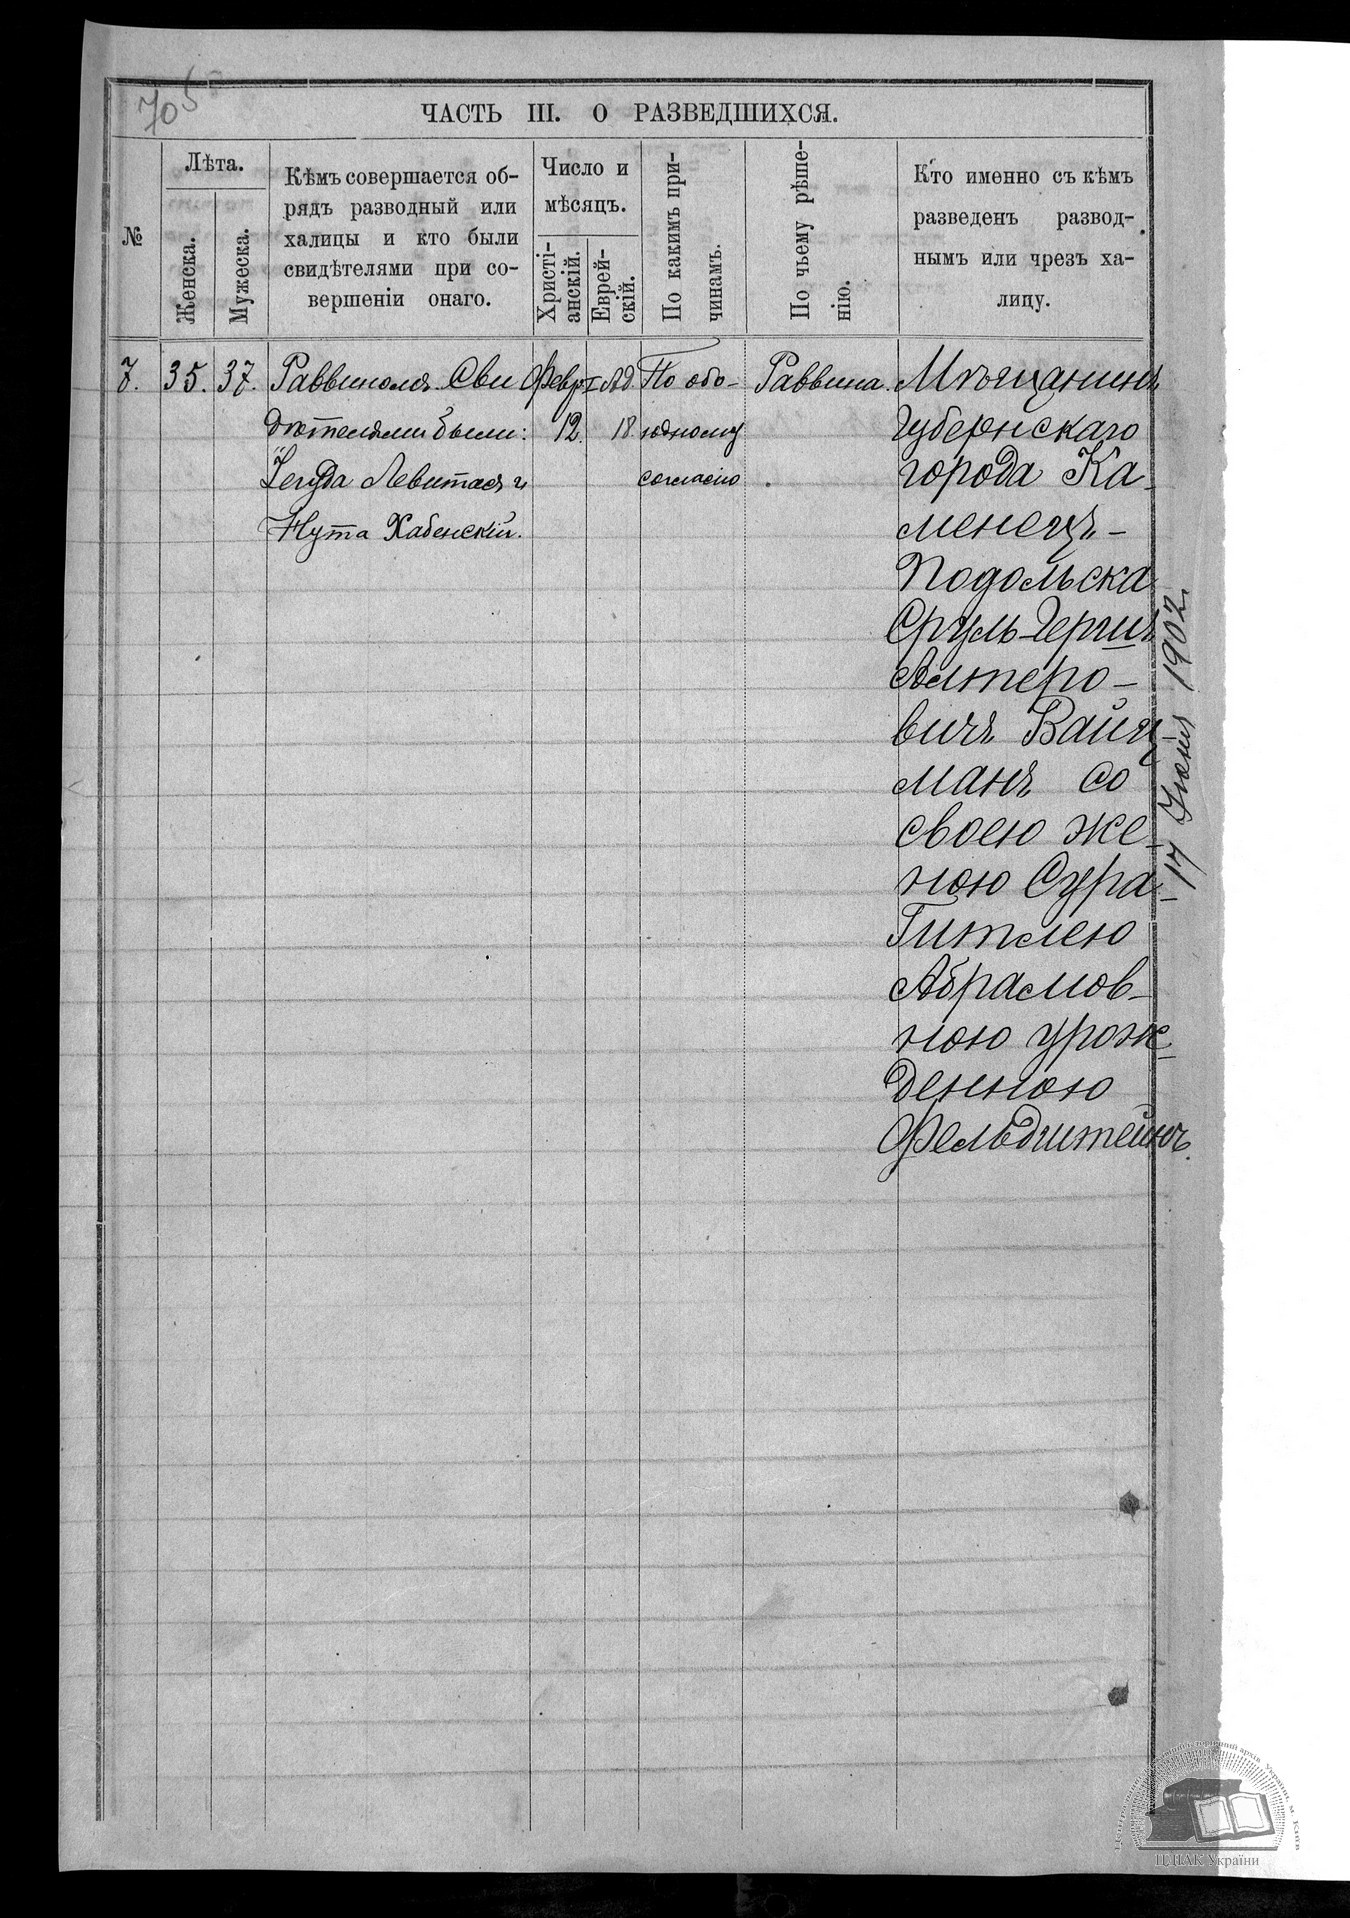 70
ЧАСТЬ III. О РАЗВЕДШИХСЯ.
№
Лѣта.
Женска.
Мужеска.
Кѣмъ совершается об-
рядъ разводный или
халицы и кто были
свидѣтелями при со-
вершеніи онаго.
Число и
мѣсяцъ.
Христі-
анскій.
Еврей-
скій.
По какимъ при-
чинамъ.
По чьему рѣше-
нію.
Кто именно съ кѣмъ
разведенъ развод-
нымъ или чрезъ ха-
лицу.
7. 35. 37.
Раввиномъ. Сви
дѣтелями были:
Іегуда Левитасъ и
Нута Хабенскій.
Февр.
12.
I Ад.
18.
По обо-
юдному
согласію
Раввина.
Мѣщанинъ
Губернскаго
города Ка-
менецъ-
Подольска
Сруль-Гершъ
Алтеро-
вичъ Вайц-
манъ со
своею же-
ною Сура-
Гитлею
Абрамов-
ною урож-
денною
Фельдштейнъ.
17 Іюня 1902
ЦДІАК України